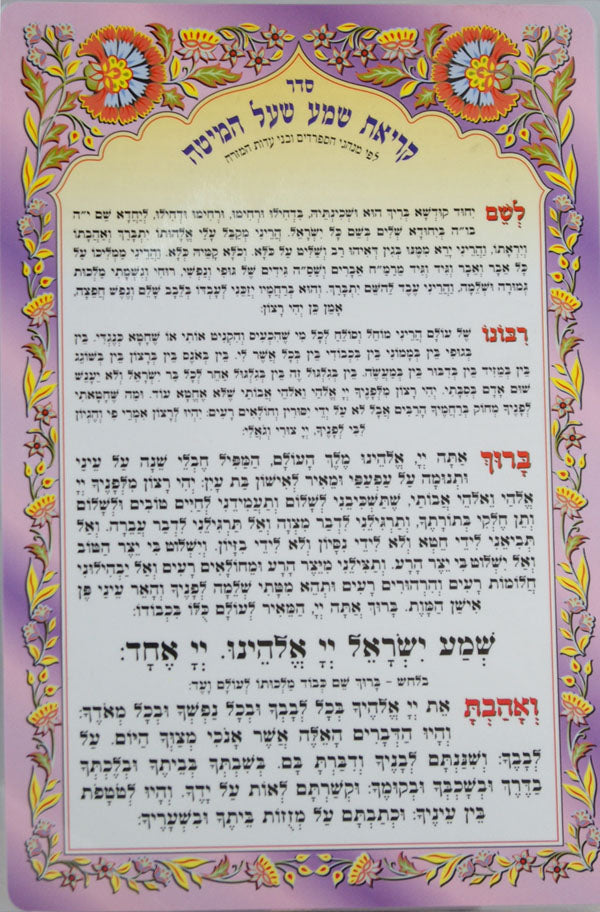 סדר
קריאת שמע שעל המיטה
לפי מנהגי הספרדים ובני עדות המזרח
לְשֵׁם יִחוּד קוּדְשָׁא בְּרִיךְ הוּא וּשְׁכִינְתֵּיהּ, בִּדְחִילוּ וּרְחִימוּ, וּרְחִימוּ וּדְחִילוּ, לְיַחֲדָא שֵׁם י״ה
בו״ה בְּיִחוּדָא שְׁלִים בְּשֵׁם כָּל יִשְׂרָאֵל. הֲרֵינִי מְקַבֵּל עָלַי אֱלָהוּתוֹ יִתְבָּרַךְ וְאַהֲבָתוֹ
וְיִרְאָתוֹ, וַהֲרֵינִי יָרֵא מִמֶּנּוּ בְּגִין דְּאִיהוּ רַב וְשַׁלִּיט עַל כֹּלָּא. וְכֹלָּא קַמֵּיהּ כְּלָא. וַהֲרֵינִי מַמְלִיכוֹ עַל
כָּל אֵבֶר וְאֵבֶר וְגִיד וְגִיד מֵרַמַ״ח אֵבָרִים וּשְׁסָ״ה גִידִים שֶׁל גּוּפִי וְנַפְשִׁי, רוּחִי וְנִשְׁמָתִי מַלְכוּת
גְּמוּרָה וּשְׁלֵמָה, וַהֲרֵינִי עֶבֶד לְהַשֵּׁם יִתְבָּרַךְ. וְהוּא בְּרַחֲמָיו יְזַכֵּנִי לְעָבְדוֹ בְּלֵבָב שָׁלֵם וְנֶפֶשׁ חֲפֵצָה,
אָמֵן כֵּן יְהִי רָצוֹן:
רִבּוֹנוֹ שֶׁל עוֹלָם הֲרֵינִי מוֹחֵל וְסוֹלֵחַ לְכָל מִי שֶׁהִכְעִיס וְהִקְנִיט אוֹתִי אוֹ שֶׁחָטָא כְּנֶגְדִּי. בֵּין
בְּגוּפִי בֵּין בְּמָמוֹנִי בֵּין בִּכְבוֹדִי בֵּין בְּכָל אֲשֶׁר לִי. בֵּין בְּאֹנֶס בֵּין בְּרָצוֹן בֵּין בְּשׁוֹגֵג
בֵּין בְּמֵזִיד בֵּין בְּדִבּוּר בֵּין בְּמַעֲשֶׂה. בֵּין בְּגִלְגּוּל זֶה בֵּין בְּגִלְגּוּל אַחֵר לְכָל בַּר יִשְׂרָאֵל וְלֹא יֵעָנֵשׁ
שׁוּם אָדָם בְּסִבָּתִי. יְהִי רָצוֹן מִלְּפָנֶיךָ יְיָ אֱלֹהַי וֵאלֹהֵי אֲבוֹתַי שֶׁלֹּא אֶחֱטָא עוֹד. וּמַה שֶּׁחָטָאתִי
לְפָנֶיךָ מְחוֹק בְּרַחֲמֶיךָ הָרַבִּים אֲבָל לֹא עַל יְדֵי יִסּוּרִין וָחוֹלָאִים רָעִים: יִהְיוּ לְרָצוֹן אִמְרֵי פִי וְהֶגְיוֹן
לִבִּי לְפָנֶיךָ, יְיָ צוּרִי וְגוֹאֲלִי:
בָּרוּךְ אַתָּה יְיָ אֱלֹהֵינוּ מֶלֶךְ הָעוֹלָם, הַמַּפִּיל חֶבְלֵי שֵׁנָה עַל עֵינַי
וּתְנוּמָה עַל עַפְעַפַּי וּמֵאִיר לְאִישׁוֹן בַּת עָיִן: יְהִי רָצוֹן מִלְּפָנֶיךָ יְיָ
אֱלֹהַי וֵאלֹהֵי אֲבוֹתַי, שֶׁתַּשְׁכִּיבֵנִי לְשָׁלוֹם וְתַעֲמִידֵנִי לְחַיִּים טוֹבִים וּלְשָׁלוֹם
וְתֵן חֶלְקִי בְּתוֹרָתֶךָ, וְתַרְגִּילֵנִי לִדְבַר מִצְוָה וְאַל תַּרְגִּילֵנִי לִדְבַר עֲבֵרָה. וְאַל
תְּבִיאֵנִי לִידֵי חֵטְא וְלֹא לִידֵי נִסָּיוֹן וְלֹא לִידֵי בִזָּיוֹן. וְיִשְׁלוֹט בִּי יֵצֶר הַטּוֹב
וְאַל יִשְׁלוֹט בִּי יֵצֶר הָרָע. וְתַצִּילֵנִי מִיֵּצֶר הָרָע וּמֵחוֹלָאִים רָעִים וְאַל יַבְהִילוּנִי
חֲלוֹמוֹת רָעִים וְהִרְהוּרִים רָעִים וּתְהֵא מִטָּתִי שְׁלֵמָה לְפָנֶיךָ וְהָאֵר עֵינַי פֶּן
אִישַׁן הַמָּוֶת. בָּרוּךְ אַתָּה יְיָ, הַמֵּאִיר לָעוֹלָם כֻּלּוֹ בִּכְבוֹדוֹ:
שְׁמַע יִשְׂרָאֵל יְיָ אֱלֹהֵינוּ. יְיָ אֶחָד:
בלחש - בָּרוּךְ שֵׁם כְּבוֹד מַלְכוּתוֹ לְעוֹלָם וָעֶד:
וְאָהַבְתָּ אֵת יְיָ אֱלֹהֶיךָ בְּכָל לְבָבְךָ וּבְכָל נַפְשְׁךָ וּבְכָל מְאֹדֶךָ:
וְהָיוּ הַדְּבָרִים הָאֵלֶּה אֲשֶׁר אָנֹכִי מְצַוְּךָ הַיּוֹם. עַל
לְבָבֶךָ: וְשִׁנַּנְתָּם לְבָנֶיךָ וְדִבַּרְתָּ בָּם. בְּשִׁבְתְּךָ בְּבֵיתֶךָ וּבְלֶכְתְּךָ
בַדֶּרֶךְ וּבְשָׁכְבְּךָ וּבְקוּמֶךָ: וּקְשַׁרְתָּם לְאוֹת עַל יָדֶךָ. וְהָיוּ לְטֹטָפֹת
בֵּין עֵינֶיךָ: וּכְתַבְתָּם עַל מְזֻזוֹת בֵּיתֶךָ וּבִשְׁעָרֶיךָ: